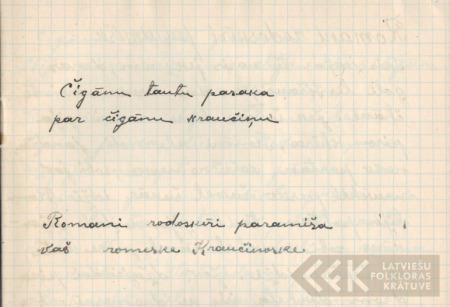 Čigānu tautu pasaka
par čigānu kraučiņi
Romani rodoskiri paramiša
vaš romeske Kraučinoske
LATVIEŠU
FOLKLORAS
KRĀTUVE